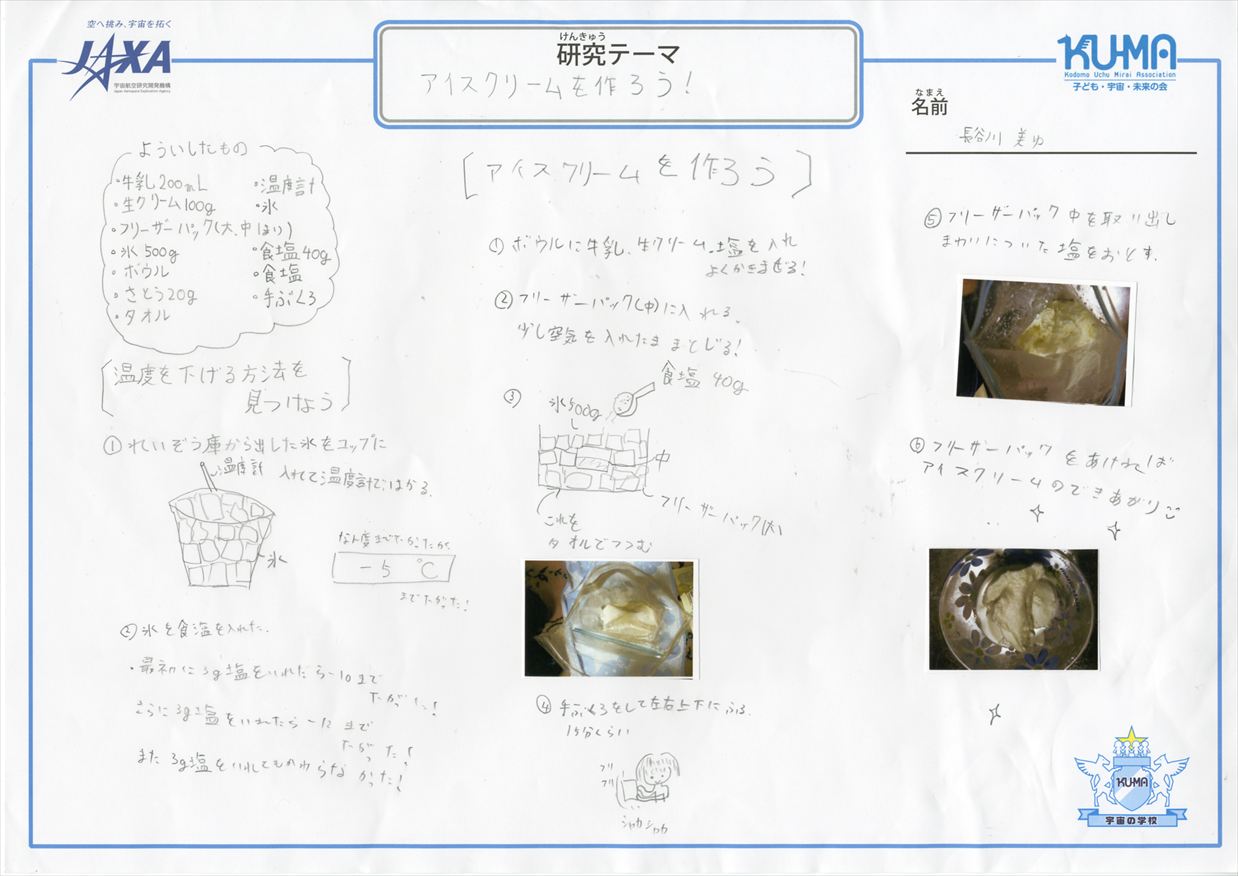 空へ挑み、宇宙を拓く
JAXA
宇宙航空研究開発機構
Japan Aerospace Exploration Agency
けんきゅう
研究テーマ
アイスクリームを作ろう!
KU-MA
Kodomo Uchu Mirai Association
子ども・宇宙・未来の会
なまえ
名前
長谷川 美
よういしたもの
・牛乳200mL
・生クリーム100g
・フリーザーパック(大、中
・氷500g
・ボウル
・さとう20g
・タオル
・温度計
・氷
・食塩40g
・食塩
・手ぶくろ
[温度を下げる方法を
見つけよう]
①れいぞう庫から出した氷をコップに
入れて温度計ではかる。
温度計
氷
なん度まで
-5℃
まで
②氷を食塩を入れた。
・最初に3g塩をいれたら-10まで
さらに3g塩をいれたら-12まで
また3g塩をいれても
[アイスクリームを作ろう]
①ボウルに牛乳、生クリーム、塩を入れ
よくかきまぜる!
②フリーザーパック(中)に入れる。
少し空気を入れたままとじる!
③
氷500g
食塩 40g
中
フリーザーパック(大)
これを
タオルでつつむ
④手ぶくろをして左右上下にふる。
15分くらい
フリ
フリ
シャカシャカ
⑤フリーザーパック中を取り出し
まわりについた塩をおとす。
⑥フリーザーパックをあければ
アイスクリームのできあがり
KU-MA
宇宙の学校